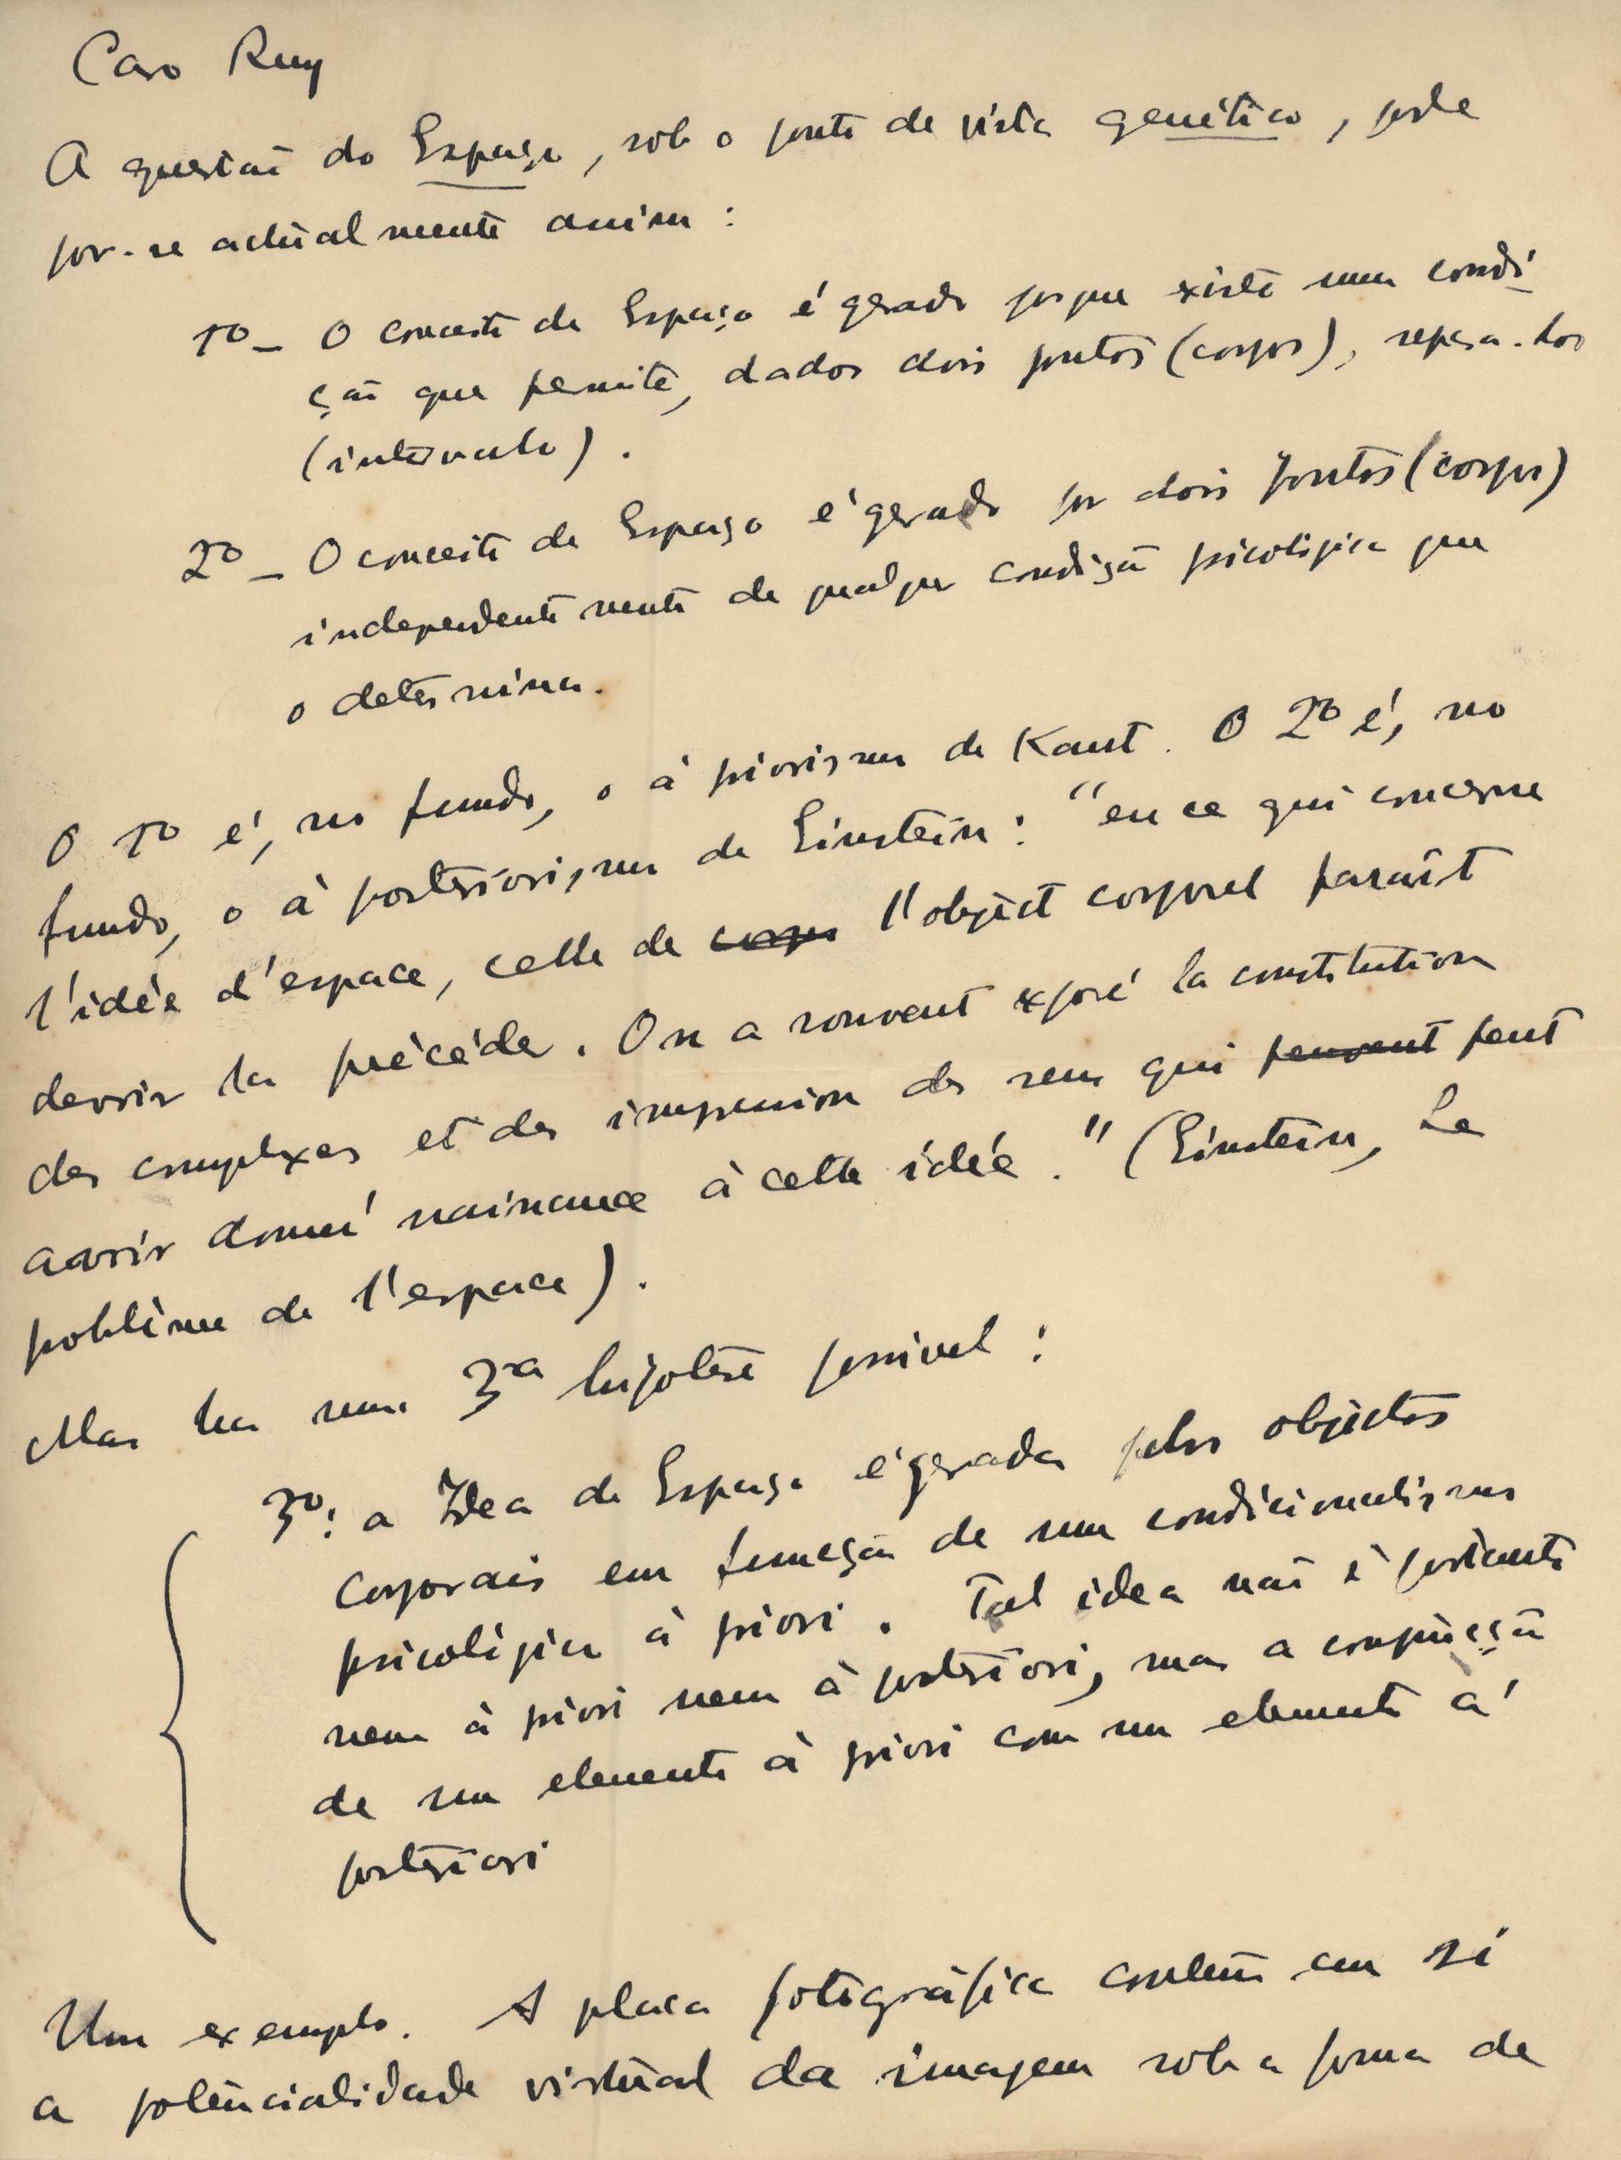 Caro Ruy
A questão do Espaço, sob o ponto de vista genético, pode
pôr-se actualmente assim:
1º - O conceito de Espaço é gerado porque existe uma condi
ção que permite, dados dois pontos (corpos), separa-los
(intervalo).
2º - O conceito de Espaço é gerado por dois pontos (corpos)
independentemente de qualquer condição psicológica que
o determina.
O 1º é, no fundo, o à priorismo de Kant. O 2º é, no
fundo, o à posteriorismo de Einstein: "en ce qui concerne
l'idée d'espace, celle de corps l'object corporel paraît
devoir la précéder. On a souvent exposé la constitution
des complexes et des impression des sens qui peuvent peut
avoir donné naissance à cette idée." (Einstein, Le
problème de l'espace).
Mas ha uma 3ª hipotese possivel:
3º: a Idea de Espaço é gerada pelos objectos
corporais em funcção de um condicionalismo
psicológico à priori. Tal idea não é portanto
nem à priori nem à posteriori, mas a conjuncção
de um elemento à priori com um elemento à
posteriori
Um exemplo. A placa fotográfica contém em si
a potêncialidade virtual da imagem sob a forma de